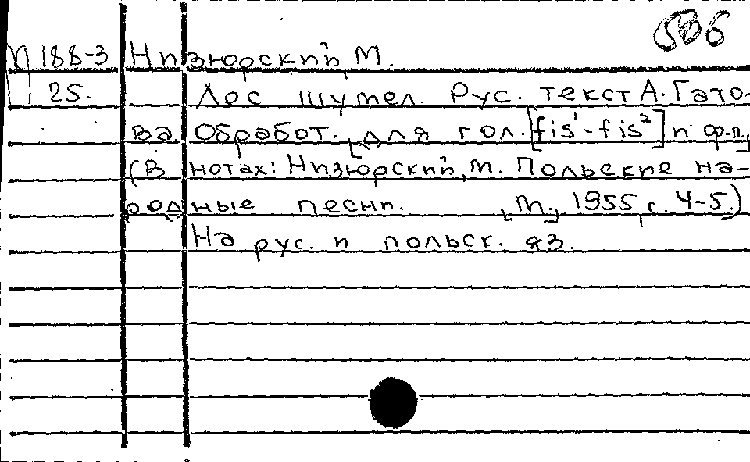 586
П 188-3 Низюрский, М.
25. Лес шумел. Рус. текст А. Гато-
ва. Обработ. для гол. [fis¹-fis²] и ф.п.
(В нотах: Низюрский, М. Польские на-
родные песни. , М., 1955, с. 4-5.)
На рус. и польск. яз.